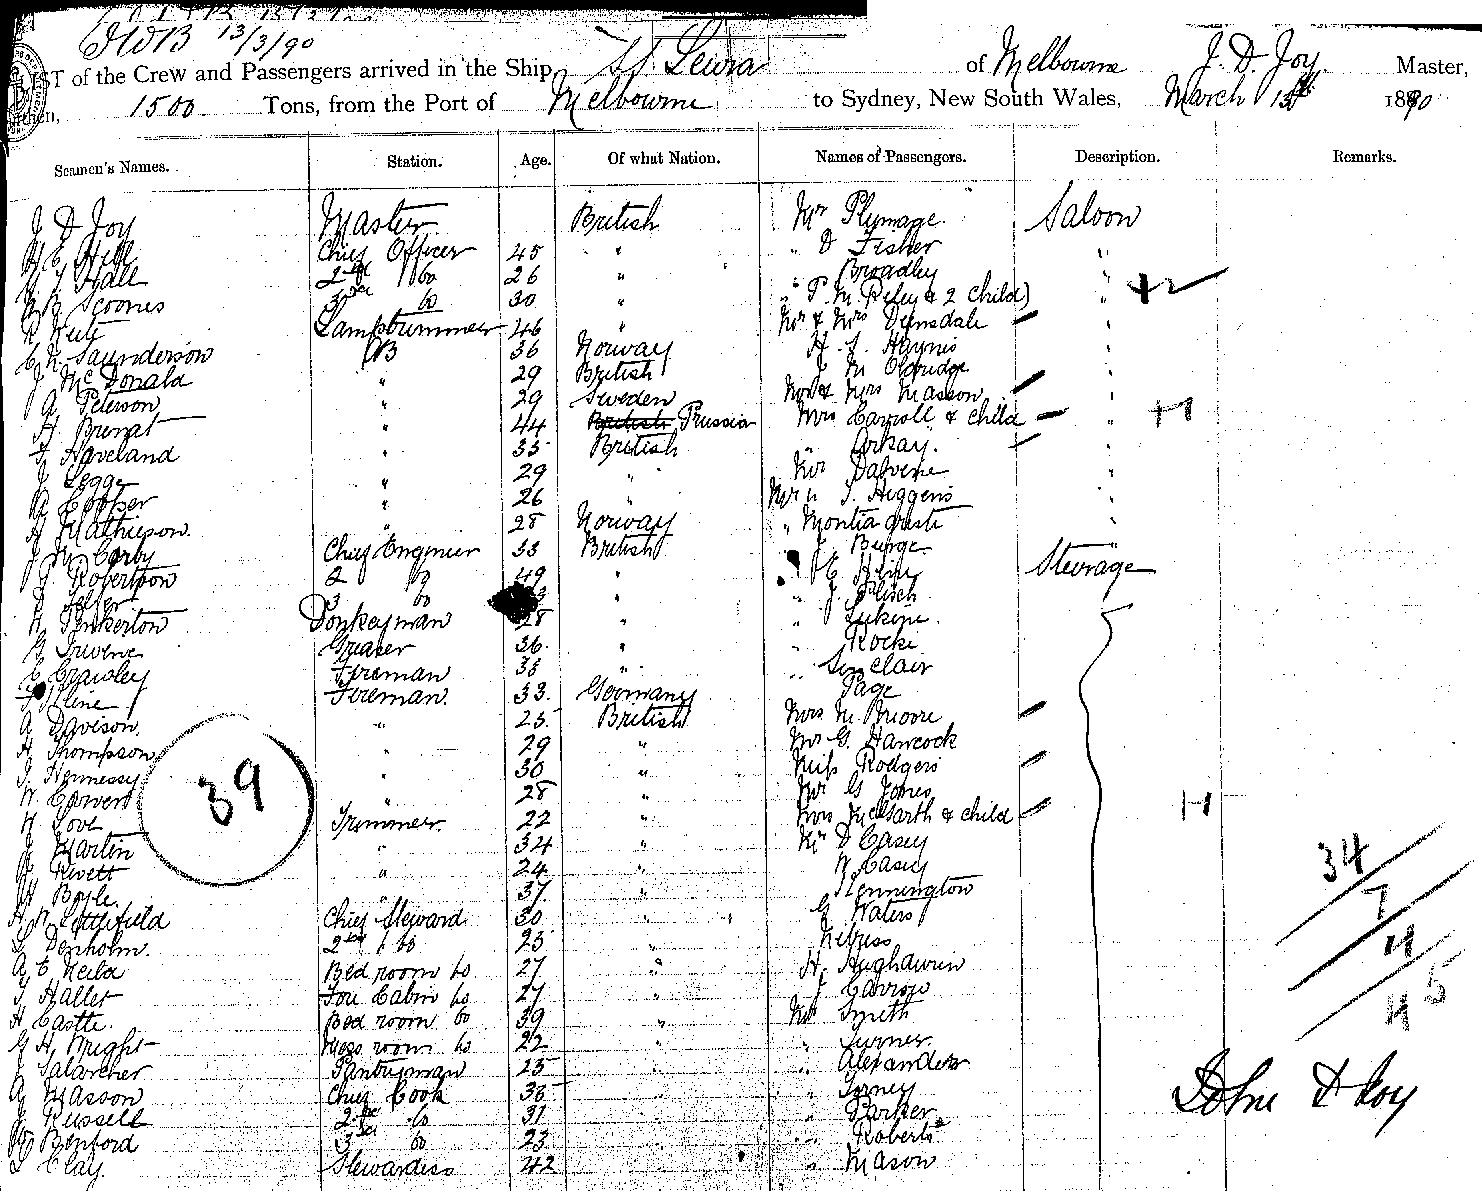 13/3/90
LIST of the Crew and Passengers arrived in the Ship of Melbourne J. D. Joy Master,
1500 Tons, from the Port of Melbourne to Sydney, New South Wales, March 1890
Seamen's Names. Station. Age. Of what Nation. Names of Passengers. Description. Remarks.
J D Joy Master British Mr Plumage Saloon
Hill Chief Officer 45 " " D Fisher "
Hall 2nd Do 26 " " Broadley "
Scoones 3rd Do 30 " " P. M. Riley & 2 child)
Lamptrimmer 46 " Mr & Mrs Dunsdale
Saunderson AB 36 Norway H. J. Haynes
J McDonald " 29 British J M Oldridge
A Peterson " 29 Sweden Mr & Mrs Masson
H. Brunat " 44 British Prussia Mrs Carroll & child
Haveland " 35 British " Arkay.
J Legge " 29 " Mr
Cooper " 26 " J. Higgens
H Mathieson " 28 Norway "
J M Corby Chief Engineer 33 British Burge
J Robertson 2 Do 49 " " E Steerage
3 Do " " J.
Pinkerton Donkeyman 28 " "
Greaser 36 " " Rocke
E Crawley Fireman 35 " " Sinclair
Kline Fireman. 33. Germany Page
A Davison. " 25 British Mrs M Moore
H Thompson " 29 " Mr G. Hancock
J. Hennessy " 30 " Miss Rodgers
39
W. " 28 " Mr G Jones
Love Trimmer 22 " Mrs & child
J Martin " 34 " Mr D Casey
J Rivett " 24 " W Casey
34
H Boyle. " 37 " Kennington
7
H. W. Littlefield Chief Steward 30 " G Waters
4
Denholm. 2nd Do 25 "
A E Neild Bed room Do 27 " H.
45
J Hallet Fore Cabin Do 27 " J
H Castle. Bed room Do 39 " Mr Smith
G H Wright Mess room Do 22 " " Turner
J Salarcher Pantryman 25 " " Alexander
A Masson Chief Cook 35 " Torney
John D Joy
J Russell 2nd Do 31 " Parker
Benford 3rd Do 23 " Roberts
Clay. Stewardess 42 " Mason